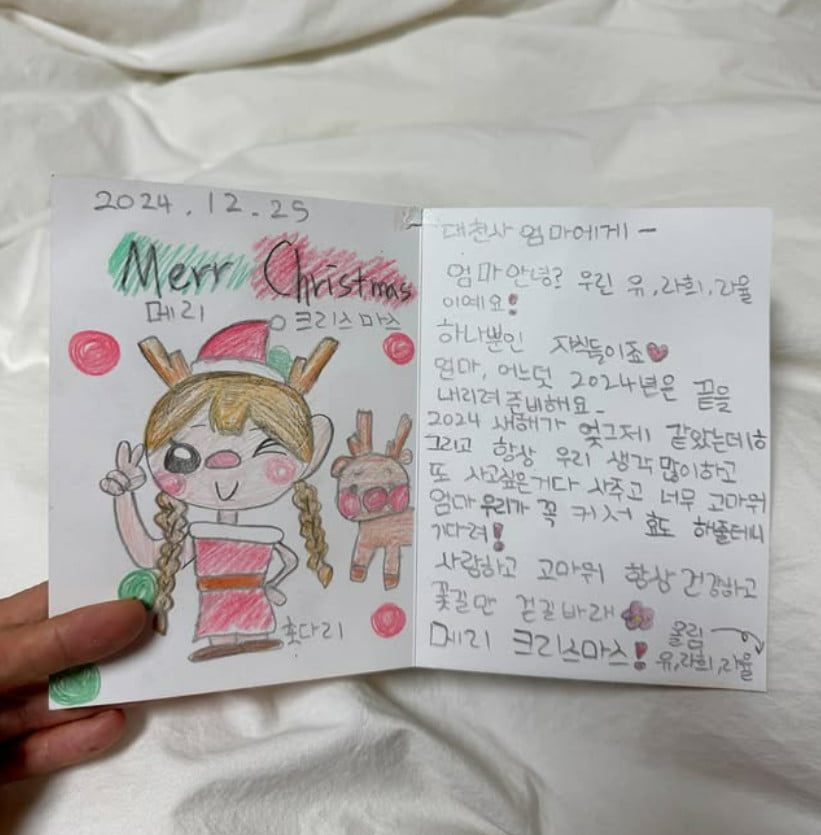 2024.12.25
Merry Christmas
메리 크리스마스
홋다리
대천사 엄마에게 -
엄마안녕? 우린 유,라희,라율
이예요!
하나뿐인 자식들이죠
엄마, 어느덧 2024년은 끝을
내리려 준비해요.
2024 새해가 엊그제 같았는데ㅎ
그리고 항상 우리 생각 많이하고
또 사고싶은거다 사주고 너무 고마워
엄마 우리가 꼭 커서 효도 해줄테니
기다려!
사랑하고 고마워 항상 건강하고
꽃길만 걷길바래
메리 크리스마스! 올림
유,라희,라율